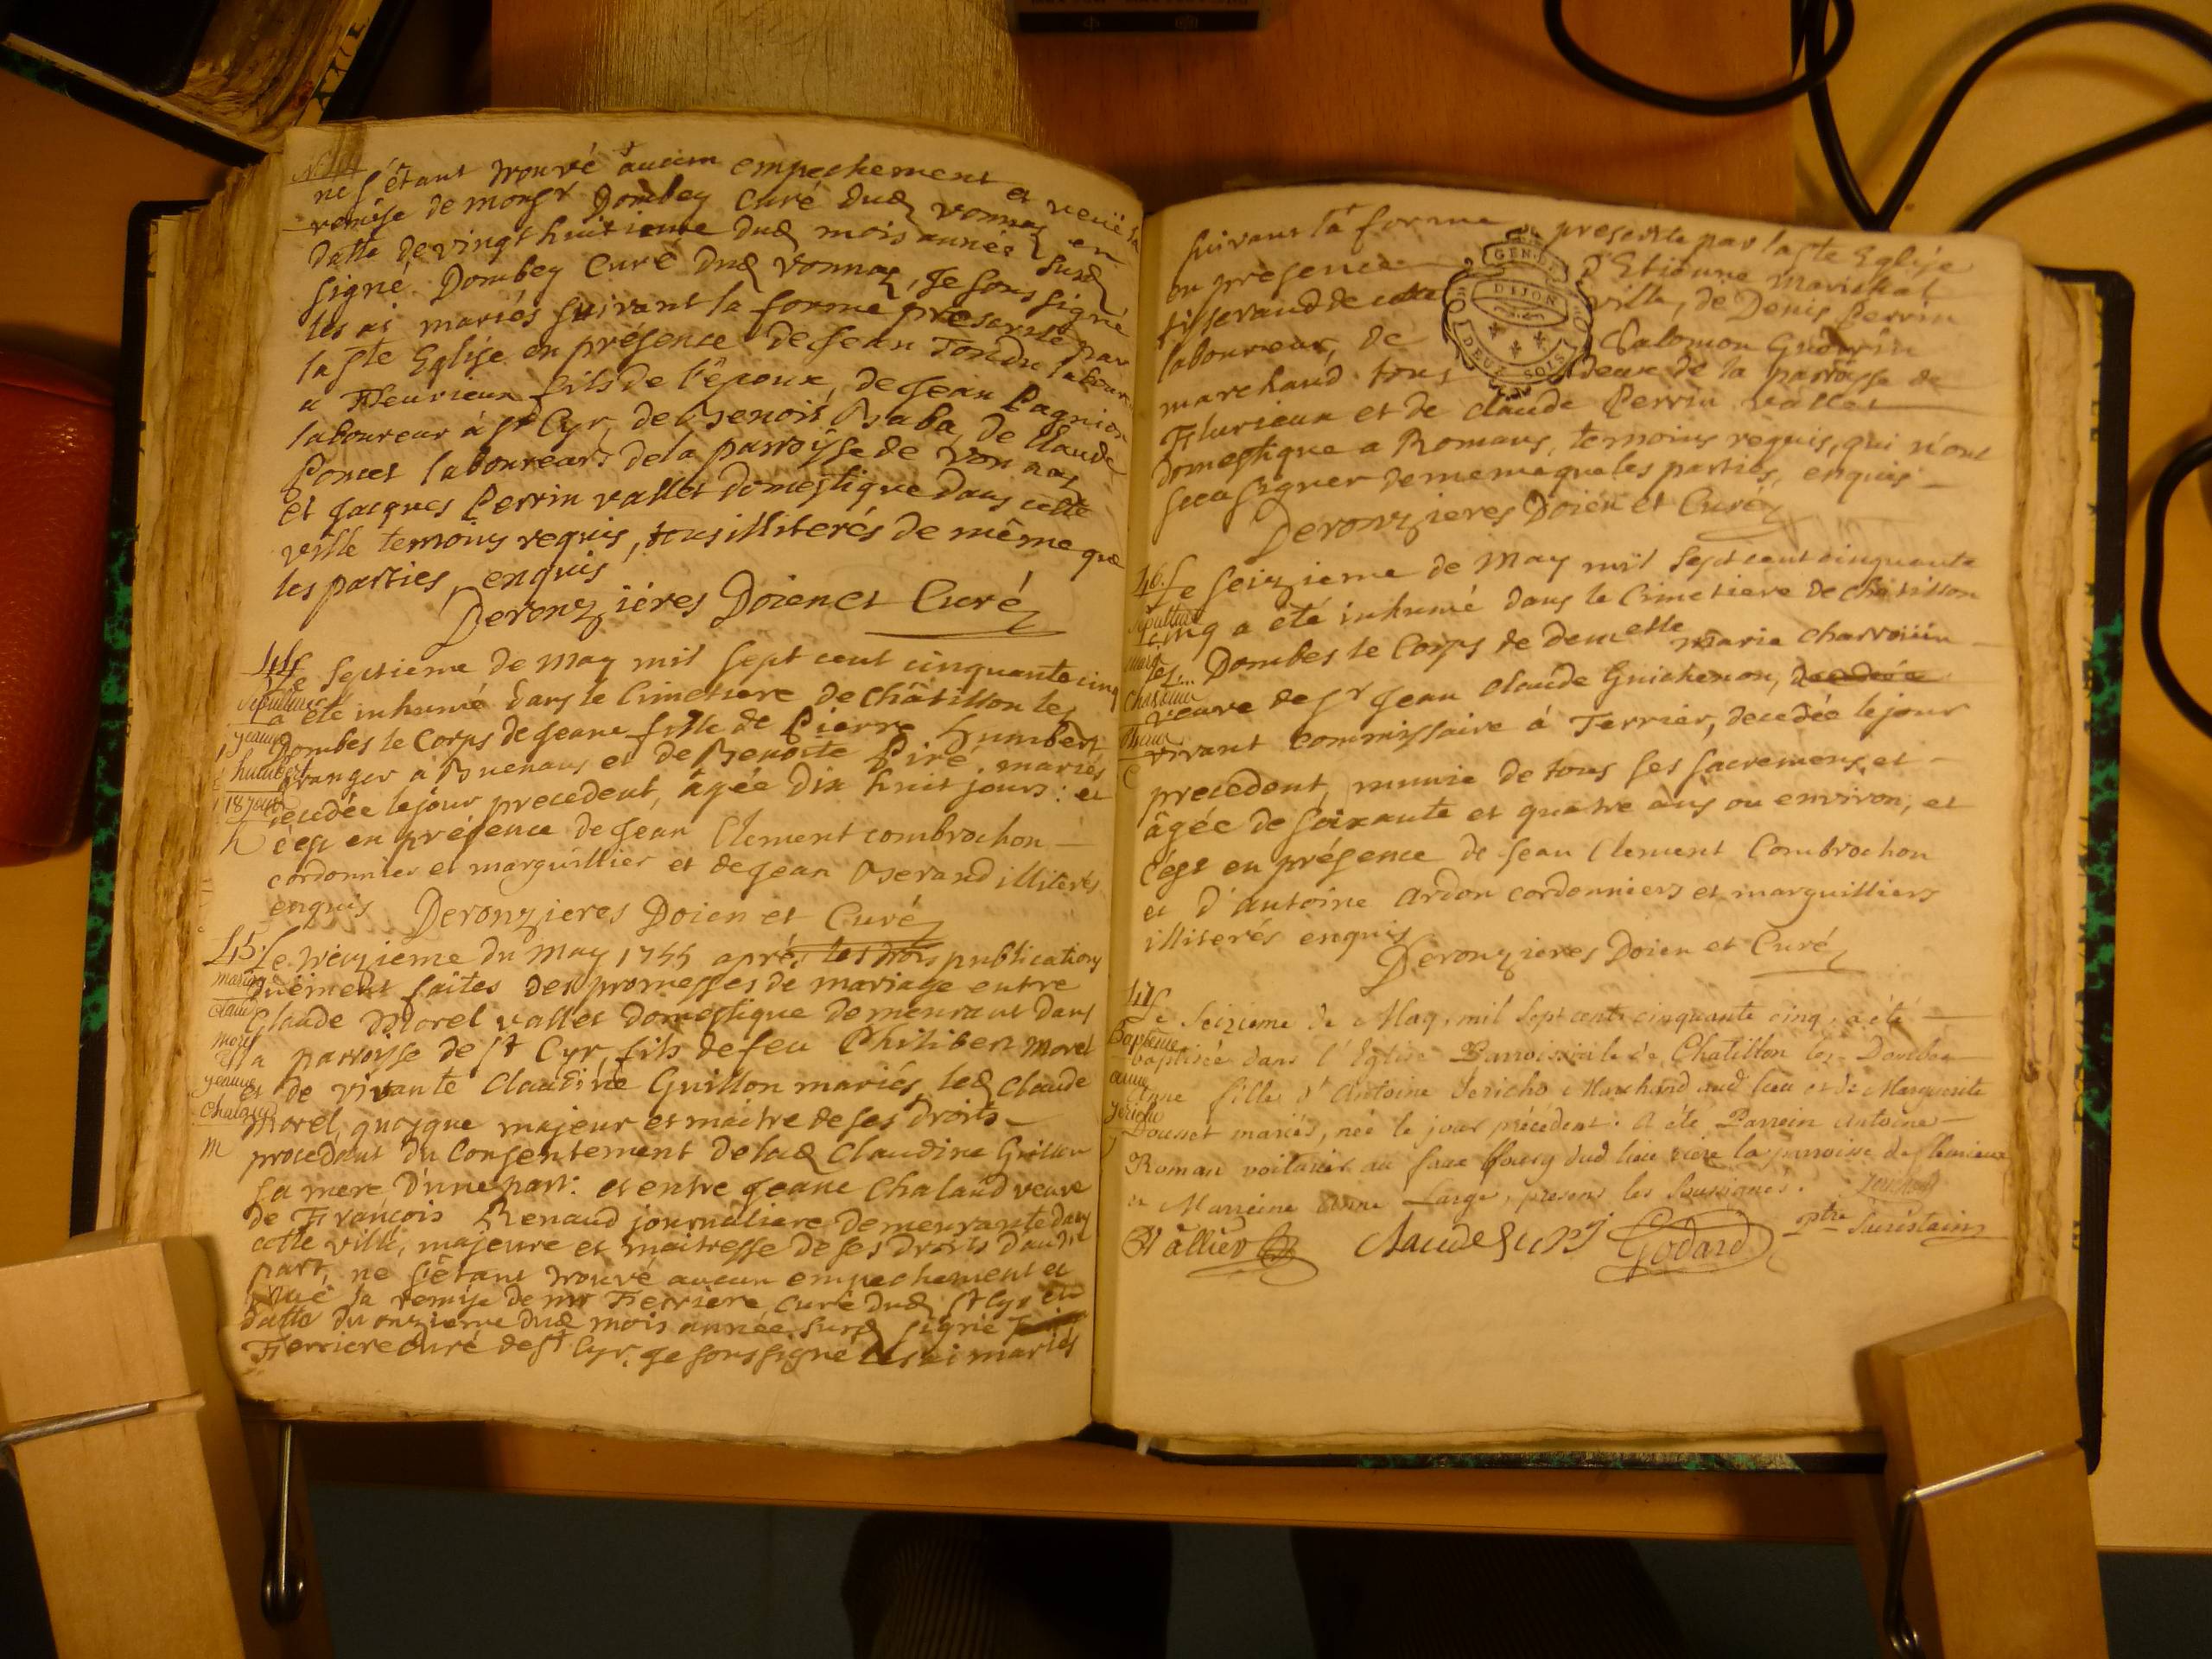 ne s'étant trouvé aucun empechement et veüe la
remise de monsr Dombey Curé dud vonnas en
datte de vingt huitieme dud mois année susd
signé Dombey Curé dud vonnas, Je soussigné
les ai mariés suivant la forme prescritte par
la ste Eglise en présence de Jean Tondu laboureur
a Fleurieux fils de l'époux, de Jean Pagnion
laboureur à st Cyr, de Benoit Baba, de Claude
Poncet laboureurs de la parroisse de Vonnas
et Jacques Perrin vallet domestique dans cette
ville temoins requis, tous illiterés de même que
les parties, enquis
Deronzières Doien et Curé
44. Le septieme de may mil sept cent cinquante cinq
Sepulture
a été inhumé dans le Cimetiere de Châtillon les
jeanne
Dombes le Corps de Jeane fille de Pierre humbert
humbert
granger a Buenans et de Benoite Piré mariés
18 jours
decedée le jour precedent, âgée dix huit jours : et
c'est en présence de Jean Clement combrochon
cordonnier et marguillier et de Jean illiterés
enquis Deronzieres Doien et Curé
45. Le treizieme du May 1755 aprés les trois publications
mariage
duëment faites des promesses de mariage entre
claude
Claude Morel vallet domestique demeurant dans
morel
la parroisse de st Cyr, fils de feu Philibert Morel
jeanne
et de vivante Claudine Guillon mariés, led Claude
chaland
Morel, quoyque majeur et maitre de ses droits
m procedant du Consentement de lad Claudine Guillon
sa mere, d'une part : et entre Jeane Chaland veuve
de François Renaud journaliere demeurante dans
cette ville, majeure et maitresse de ses droits d'autre
part, ne s'étant trouvé aucun empechement et
vuë la remise de mr Ferriere, curé dud st Cyr en
datte du onzieme dud mois année susd signé
Ferriere Curé de st Cyr, Je soussigné les ai mariés
suivant la forme prescritte par la ste Eglise
en présence d'Etienne Marichal
tisserand de cette ville, de Denis Perrin
laboureur, de Salomon Guerrin
marchand tous deux de la parroisse de
Flurieux et de Claude Perrin vallet
domestique a Romans, temoins requis, qui n'ont
sceu signer de meme que les parties, enquis
Deronzieres Doien et Curé
46. Le seizieme de May mil sept cent cinquante
Sepulture
cinq a été inhumé dans le Cimetiere de Châtillon
les Dombes le Corps de demelle Marie Charroiiin
veuve de sr Jean Claude Guichenon,
vivant commissaire à Terrier, decedée le jour
precedent, munie de tous ses sacremens, et
âgée de soixante et quatre ans ou environ, et
c'est en présence de Jean Clement Combrochon
et d'antoine ardon cordonniers et marguilliers
illiterés enquis
Deronzieres Doien et Curé
47. Le Seizieme de May, mil sept cent cinquante cinq, a été
Bapteme
baptisée dans l'Eglise Parroissiale de Chatillon les Dombes
anne
Anne fille d'Antoine Jericho Marchand aud lieu et de Marguerite
Jericho
Dousset mariés, née le jour précédent. A été Parrein Antoine
Roman voiturier au faux bourg dud lieu riere la parroisse de fleurieux
et Marreine Anne Large, presens les soussignés.
Vallier Claude Godard ptre Sacristain